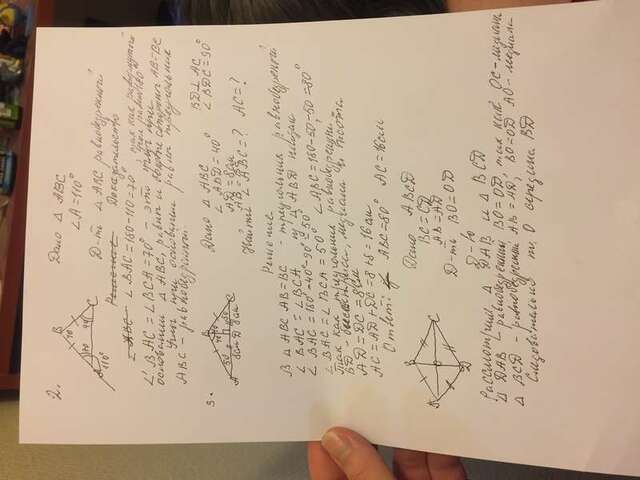 2.
Дано △ ABC
∠A = 110°
Д-ть △ ABC равнобедренный
Доказательство
∠BAC = 180 - 110 = 70°
∠BAC = ∠BCA = 70° - это углы при
основании △ ABC,
ABC - равнобедренный.
3.
Дано △ ABC
BD ⊥ AC
∠ABD = 40°
∠BDC = 90°
AD = 8 см
Найти ∠ABC = ? AC = ?
Решение
В △ ABC AB = BC - треугольник равнобедренный
∠BAC = ∠BCA, из △ ABD найдём
∠BAC = 180° - 40° - 90° = 50°
∠BAC = ∠BCA = 50° ∠ABC = 180 - 50 - 50 = 80°
Так как треугольник равнобедренный
BD биссектриса, медиана и высота
AD = DC = 8 см
AC = AD + DC = 8 + 8 = 16 см
Ответ: ABC = 80° AC = 16 см
Дано ABCD
BC = CD
AB = AD
Д-ть BO = OD
Д-во
Рассмотрим △ DAB и △ BCD
△ DAB равнобедрен BO = OD так как OC - медиана
△ BCD - равнобедрен AB = AD, BO = OD AO - медиана
Следовательно т. O середина BD